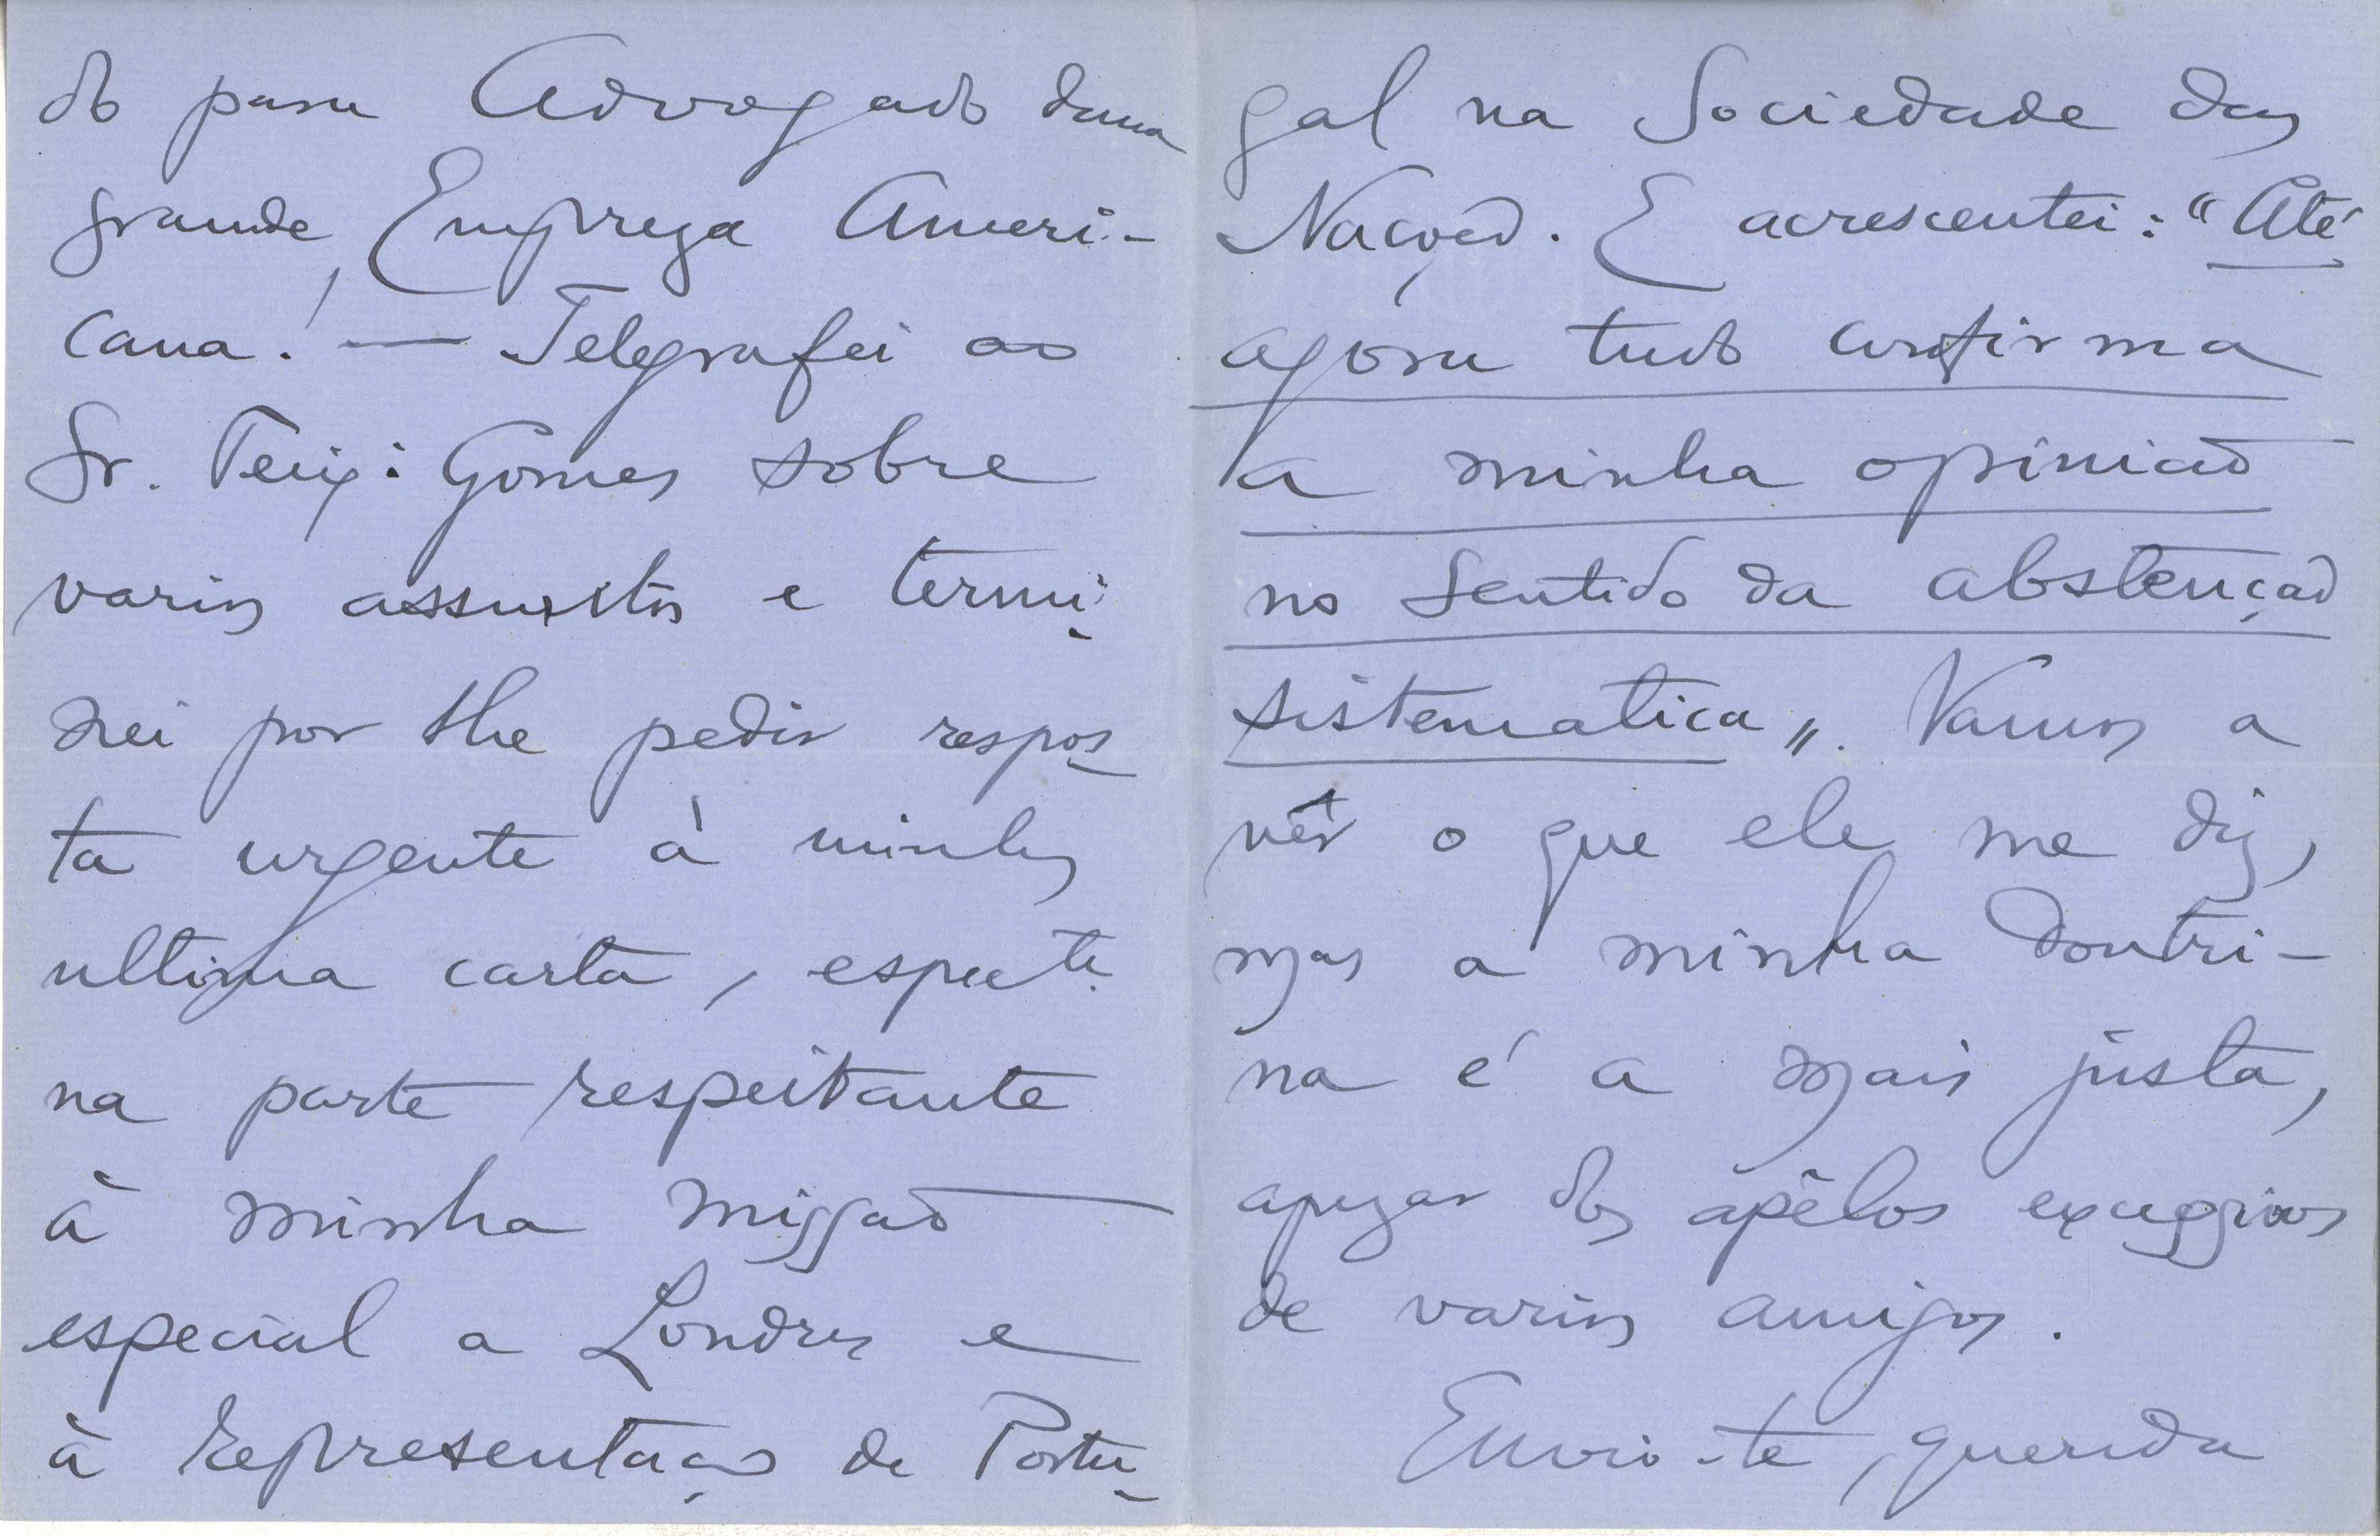 do para Advogado duma
grande Empreza Ameri-
cana! — Telegrafei ao
Sr. Teix: Gomes sobre
varios assuntos e termi-
nei por lhe pedir respos-
ta urgente à minha
ultima carta, especte.
na parte respeitante
à minha missão
especial a Londres e
à Representação de Portu-
gal na Sociedade das
Nações. E acrescentei: "Até
agora tudo confirma
a minha opinião
no sentido da abstenção
sistematica". Vamos a
vêr o que ele me diz,
mas a minha doutri-
na é a mais justa,
apezar dos apêlos excessivos
de varios amigos.
Envio-te, querida